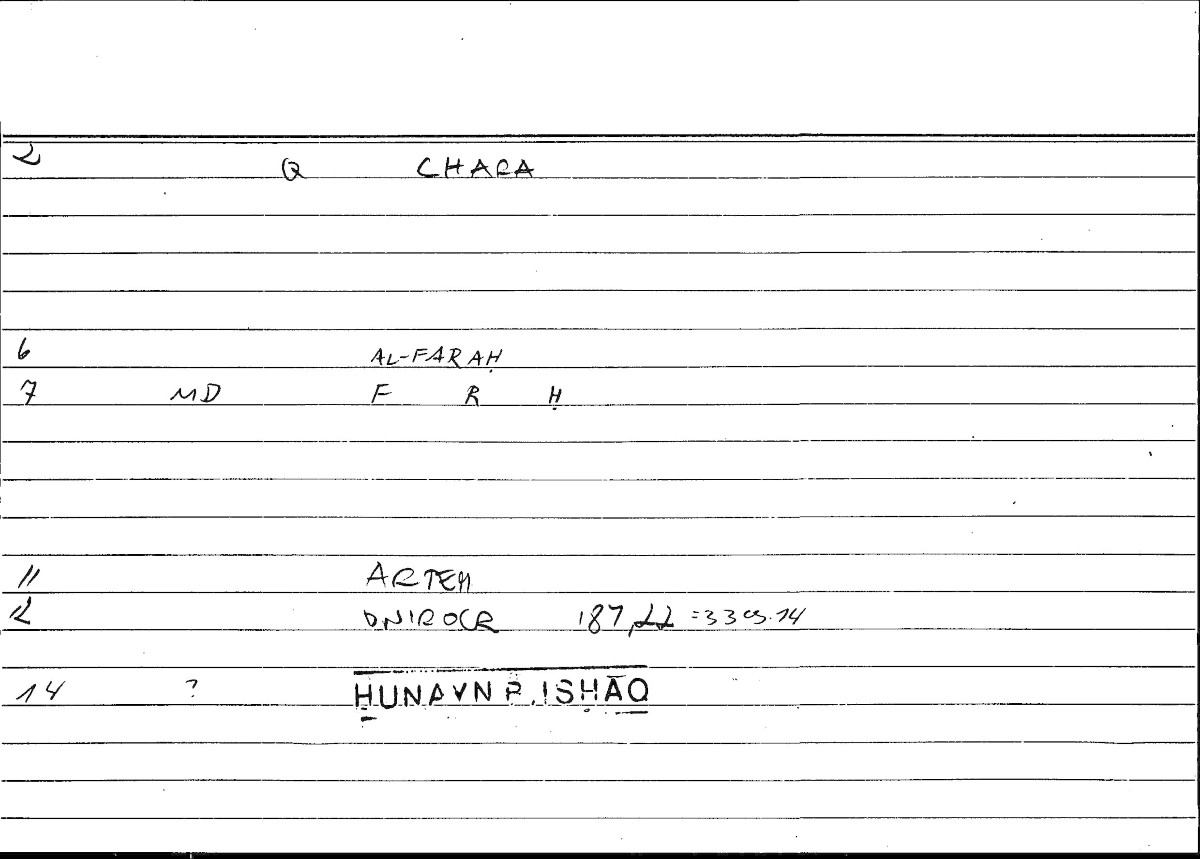 2 Q CHARA
6 AL-FARAḤ
7 MD F R Ḥ
11 ARTEM
12 DNIROCR 187,22 =3303.14
14 ? ḤUNAYN B. ISḤĀQ